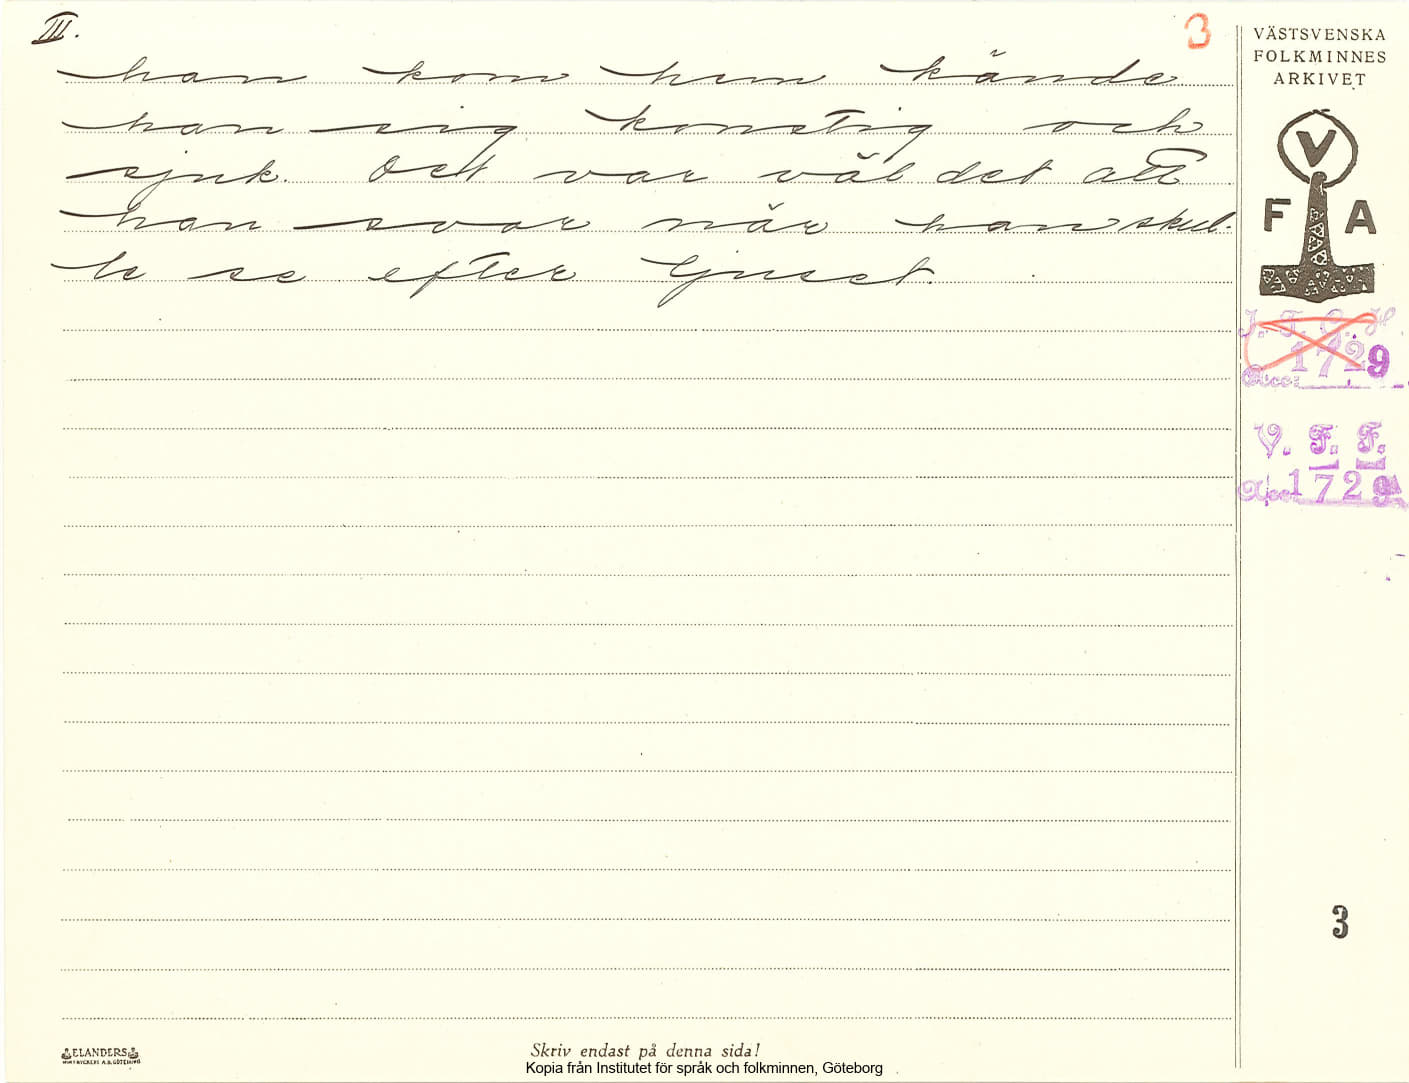 III.
3
han kom hem kände
han sig konstig och
sjuk. Det var väl det att
han svor när han skul-
le se efter ljuset.
VÄSTSVENSKA
FOLKMINNES
ARKIVET
V
F A
I. F. G. H.
Acc: 1729
V. F. F.
Acc 1729
3
ELANDERS
Skriv endast på denna sida!
Kopia från Institutet för språk och folkminnen, Göteborg